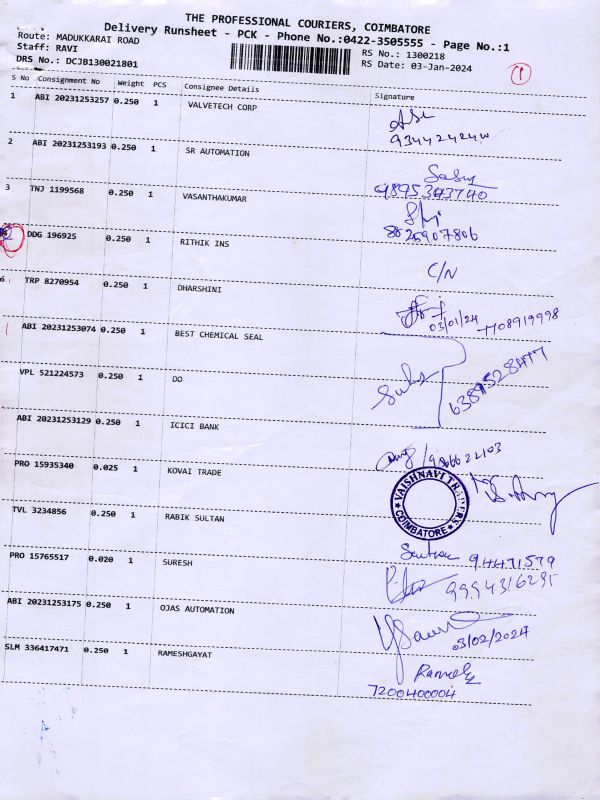 THE PROFESSIONAL COURIERS, COIMBATORE
Delivery Runsheet - PCK - Phone No.:0422-3505555 - Page No.:1
Route: MADUKKARAI ROAD RS No.: 1300218
Staff: RAVI RS Date: 03-Jan-2024
DRS No.: DCJB130021801
1
S No Consignment No Weight PCS Consignee Details Signature
1 ABI 20231253257 0.250 1 VALVETECH CORP
2 ABI 20231253193 0.250 1 SR AUTOMATION
3 TNJ 1199568 0.250 1 VASANTHAKUMAR
9895343740
DDG 196925 0.250 1 RITHIK INS
8026907806
C/N
6 TRP 8270954 0.250 1 DHARSHINI
03/01/24 7708919998
ABI 20231253074 0.250 1 BEST CHEMICAL SEAL
VPL 521224573 0.250 1 DO
ABI 20231253129 0.250 1 ICICI BANK
PRO 15935340 0.025 1 KOVAI TRADE
VAISHNAVI TRADERS
COIMBATORE
TVL 3234856 0.250 1 RABIK SULTAN
94471579
PRO 15765517 0.020 1 SURESH
9994316295
ABI 20231253175 0.250 1 OJAS AUTOMATION
03/02/2024
SLM 336417471 0.250 1 RAMESHGAYAT
7200400004